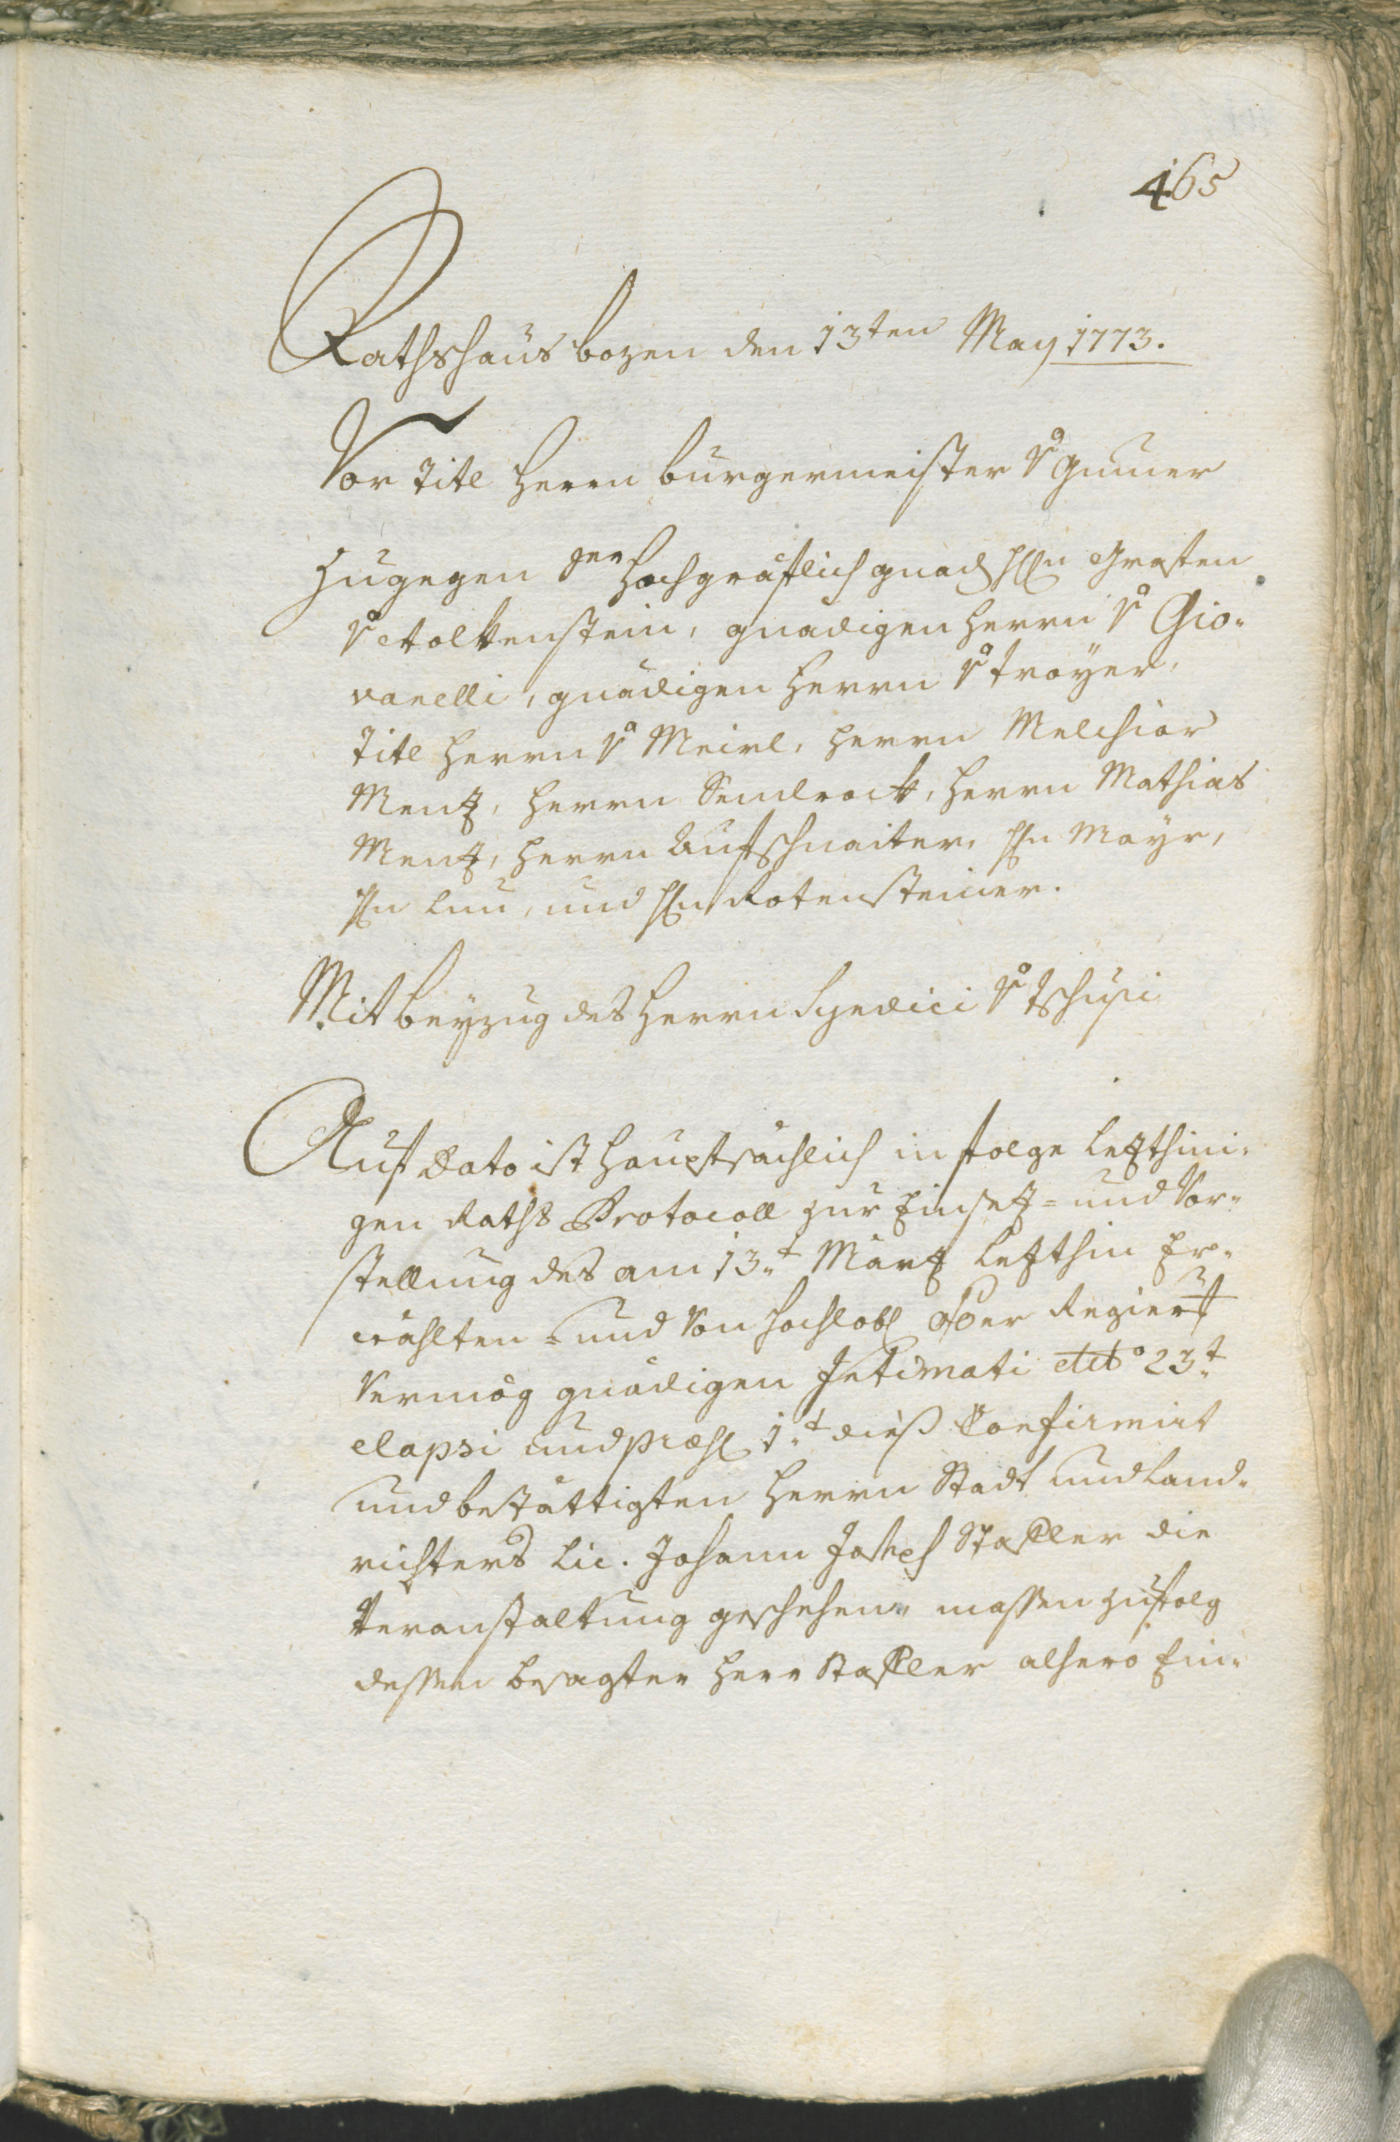 465
Rathshaus bozen den 13ten May 1773.
Vor Titl Herrn burgermeister v Gumer
Zugegen hochgräflich gnad H̃n Grafen
v Wolkenstein, gnädigen Herrn v Gio-
vanelli, gnädigen Herrn v Troyer,
Titl Herrn v Meirl, Herrn Melchior
Menz, Herrn Hendrock, Herrn Mathias
Menz, Herrn Aufschnaiter, H̃n Mayr,
H̃n Lun, und H̃n Rotensteiner.
Mit beyzug des Herrn Syndici v Tschusi
Auf Dato ist hauptsächlich in folge letzthini-
gen Raths Protocoll zur Einsetz- und Vor-
stellung des am 13.t Märtz letzthin Er-
wählten- und von hochlobl. Ober Regier
vermög gnädigen Intimati dtto 23.t
elapsi und præs 1.t diess Confirmirt
und bestättigten Herrn Stadt und Land-
richters Lic. Johann Joseph Stafler die
Veranstaltung geschehen, massen zufolg
dessen besagter Herr Stafler alhero Ein-